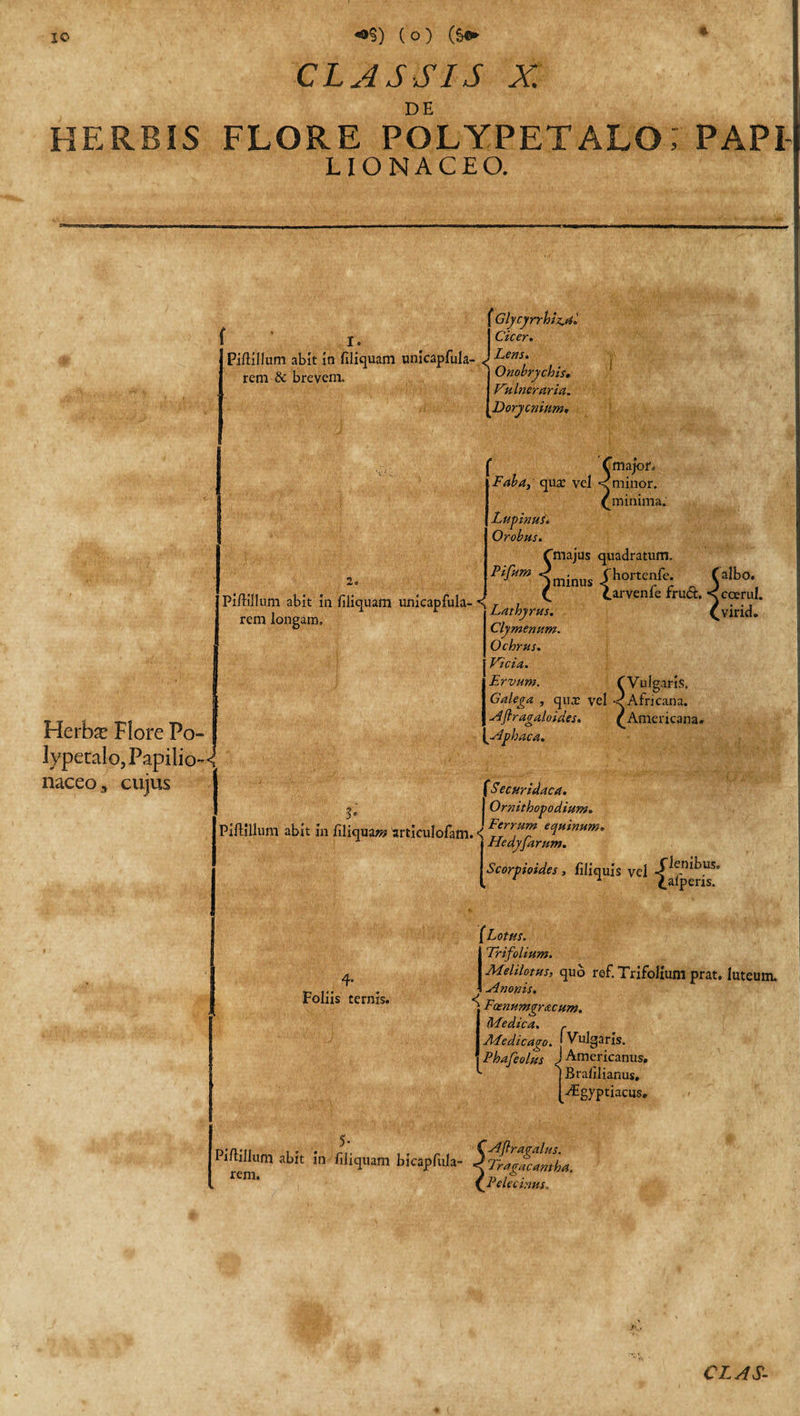 10 (o)
CLASSIS X.
DE
HERBIS FLORE POLYPETALO; PAPI-
LIONACEO.
Herbæ Flore Po-
lypetalo, Papilio-
naceo, cujus
1.
Piſtillum abit in ſiliquam unicapſula-
rem & brevem.
Glycyrrhiza.
Cicer.
Lens.
Onobrychis.
Vulneraria.
Dorycnium.
2.
Piſtillum abit in ſiliquam unicapſula-
rem longam.
Faba, quæ vel
major.
minor.
minima.
Lupinus.
Orobus.
Piſum
majus quadratum.
minus
hortenſe.
arvenſe fruct.
albo.
cœrul.
virid.
Lathyrus.
Clymenum.
Ochrus.
Vicia.
Ervum.
Galega, quæ vel
Vulgaris.
Africana.
Americana.
Aſtragaloides.
Aphaca.
3.
Piſtillum abit in ſiliquam articuloſam.
Securidaca.
Ornithopodium.
Ferrum equinum.
Hedyſarum.
Scorpioides, ſiliquis vel
lenibus.
aſperis.
4.
Foliis ternis.
Lotus.
Trifolium.
Melilotus, quò ref. Trifolium prat. luteum.
Anonis.
Fœnumgræcum.
Medica.
Medicago.
Phaſeolus
Vulgaris.
Americanus.
Braſilianus.
Ægyptiacus.
5.
Piſtillum abit in ſiliquam bicapſula-
rem.
Aſtragalus.
Tragacantha.
Pelecinus.
CLAS-